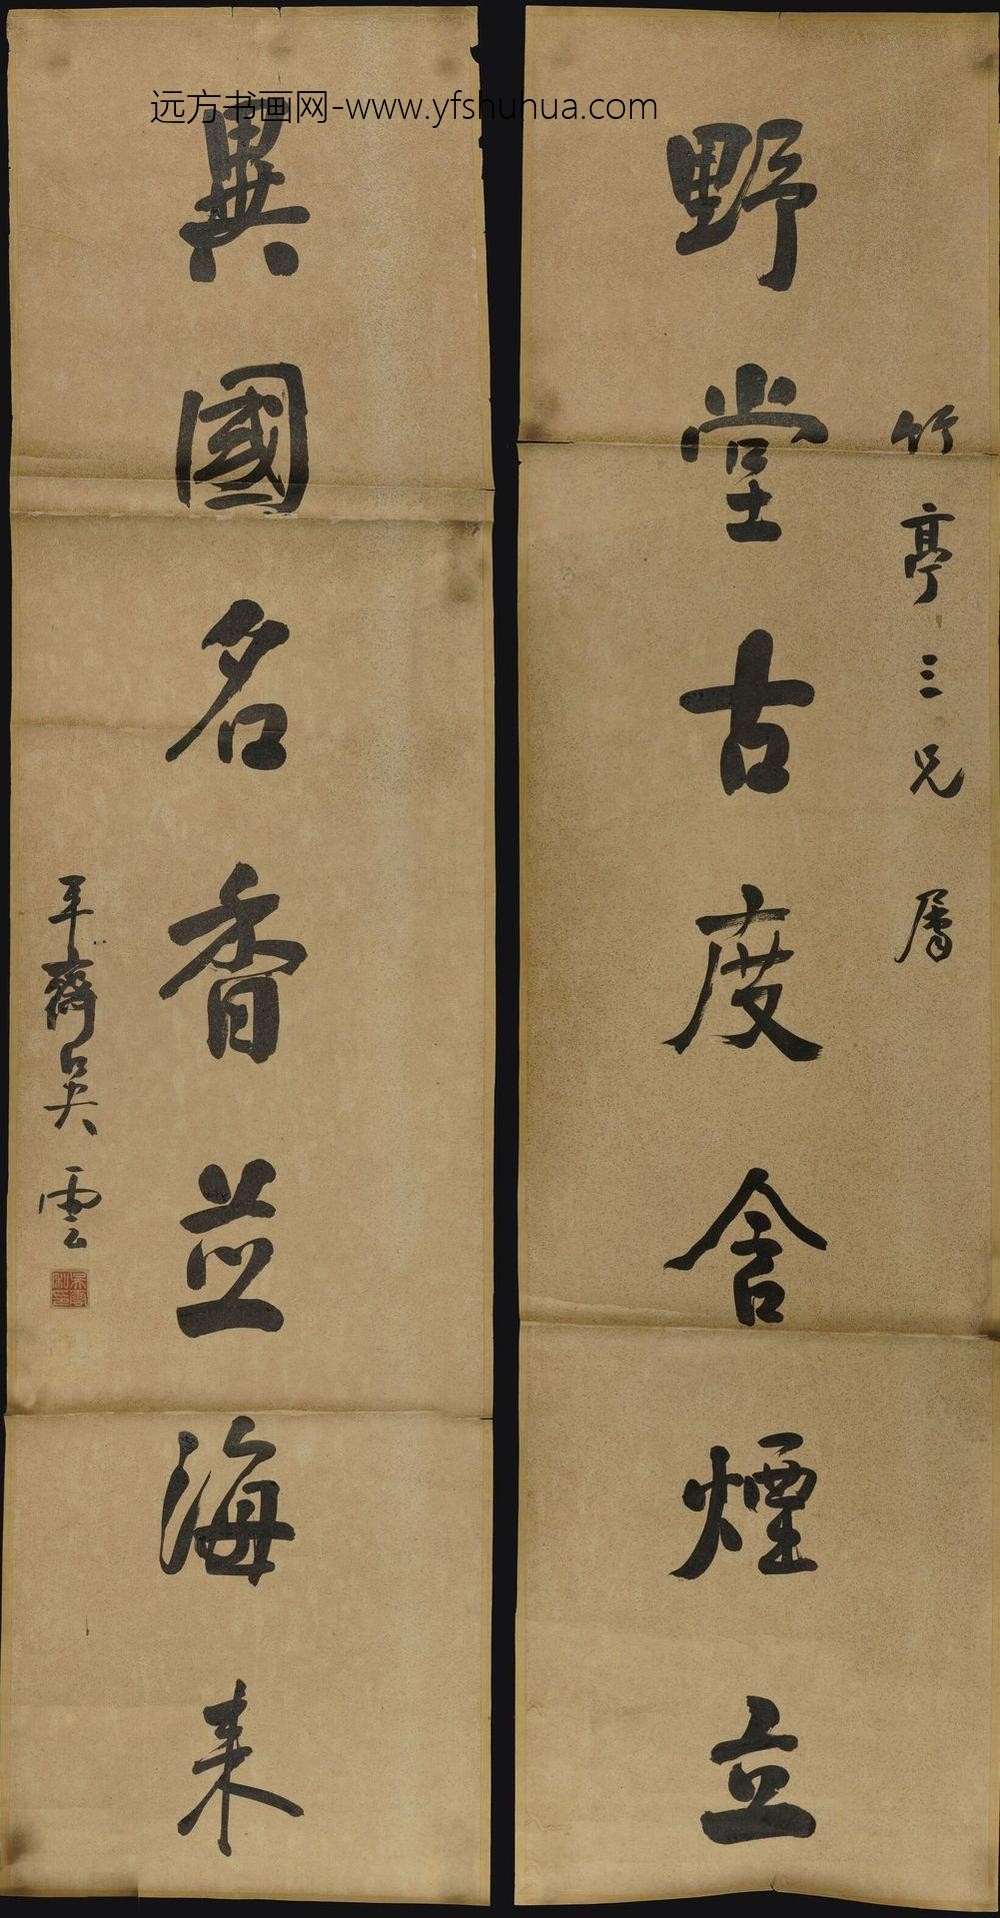 远方书画网-www.yfshuhua.com
竹亭三兄属
野堂古度含煙立
異國名香並海来
平齋吴雲